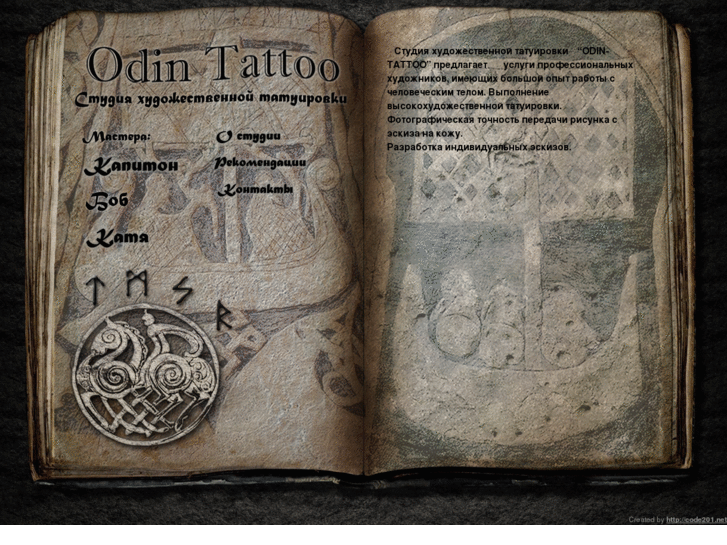 Odin Tattoo
Студия художественной татуировки
Мастера:
Капитон
Боб
Катя
О студии
Рекомендации
Контакты
ᛏ ᛗ ᛊ ᚱ
Студия художественной татуировки “ODIN-
TATTOO” предлагает услуги профессиональных
художников, имеющих большой опыт работы с
человеческим телом. Выполнение
высокохудожественной татуировки.
Фотографическая точность передачи рисунка с
эскиза на кожу.
Разработка индивидуальных эскизов.
Created by http://code201.net